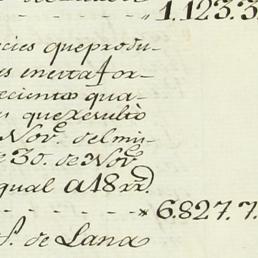 1.123.3
cies que produ-
es en esta for-
ecientos qua-
s que resultó
Nov.e del mis-
e 30. de Nov.e
qual a 18 rr.
6.827.7.
P. de Lana